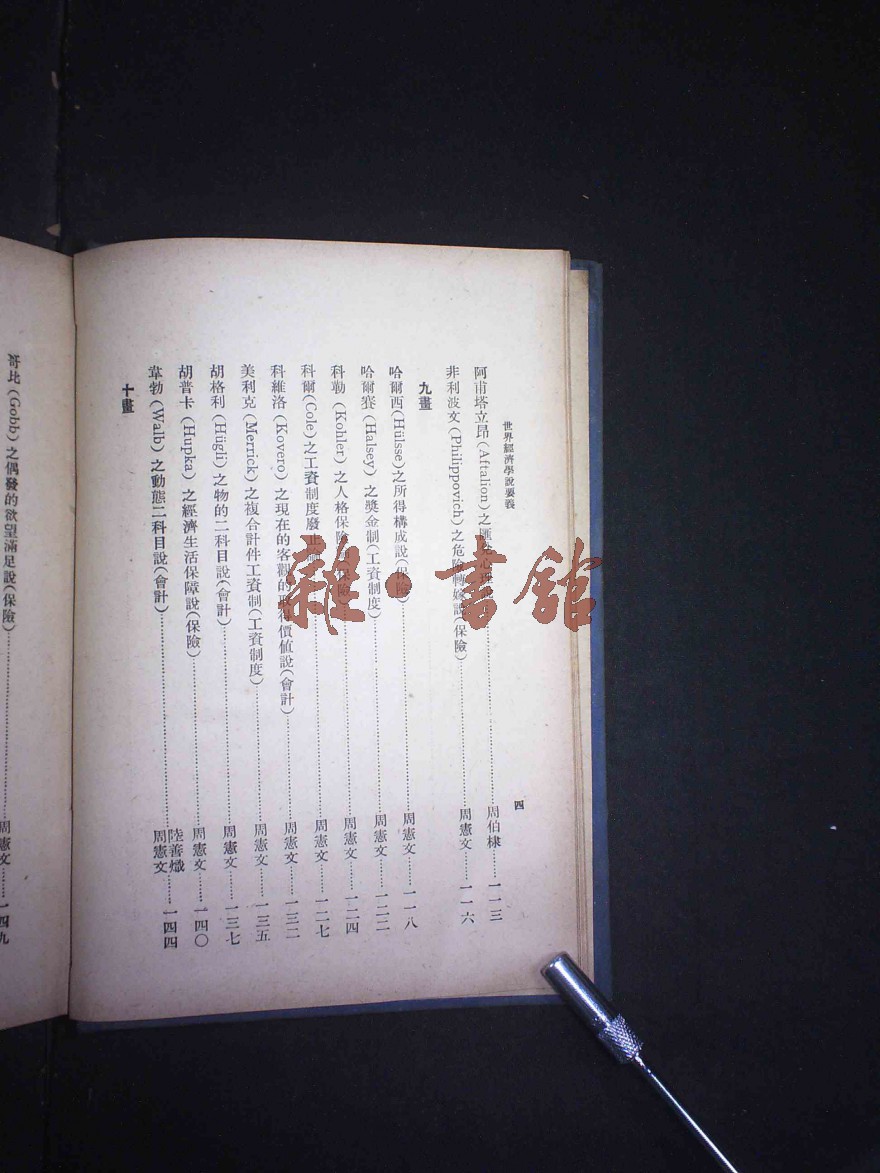 世界經濟學說要義
四
阿甫塔立昂(Aftalion)之匯兌心理說……周伯棣……一一三
非利波文(Philippovich)之危險轉嫁說(保險)……周憲文……一一六
九畫
哈爾西(Hülsse)之所得構成說(保險)……周憲文……一一八
哈爾賽(Halsey)之獎金制(工資制度)……周憲文……一二二
科勒(Kohler)之人格保險說(保險)……周憲文……一二四
科爾(Cole)之工資制度廢止……周憲文……一二七
科維洛(Kovero)之現在的客觀的取得價値說(會計)……周憲文……一三二
美利克(Merrick)之複合計件工資制(工資制度)……周憲文……一三五
胡格利(Hügli)之物的二科目說(會計)……周憲文……一三七
胡普卡(Hupka)之經濟生活保障說(保險)……周憲文……一四〇
韋勃(Walb)之動態二科目說(會計)……陸善熾 周憲文……一四四
十畫
哥比(Gobb)之偶發的欲望滿足說(保險)……周憲文……一四九
雜·書館